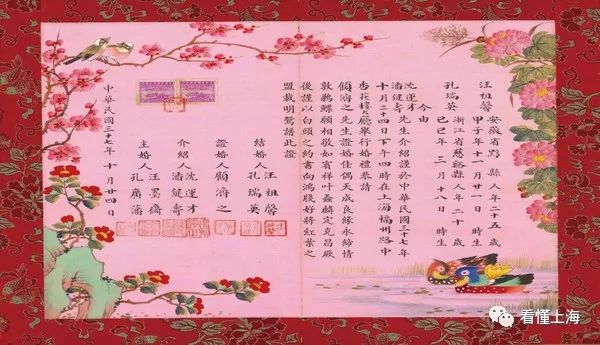 汪祖馨
安徽省黟縣人年二十五歲
甲子年十一月廿一日 時生
孔瑞英
浙江省慈谿縣人年二十歲
己巳年三月十八日 時生
今由
沈運才
潘健壽先生介紹謹於中華民國三十七年
十月二十四日下午四時在上海福州路中
杏花樓大廳舉行婚禮恭請
顧濟之先生證婚佳偶天成良緣永締情
敦鶼鰈願相敬如賓祥叶螽麟定克昌厥
後謹以白頭之約書向鴻箋好將紅葉之
盟載明鴛譜此證
結婚人
汪祖馨
孔瑞英
證婚人顧濟之
介紹人
沈運才
潘健壽
主婚人
汪墨
孔廣潘
中華民國三十七年十月廿四日
看懂上海